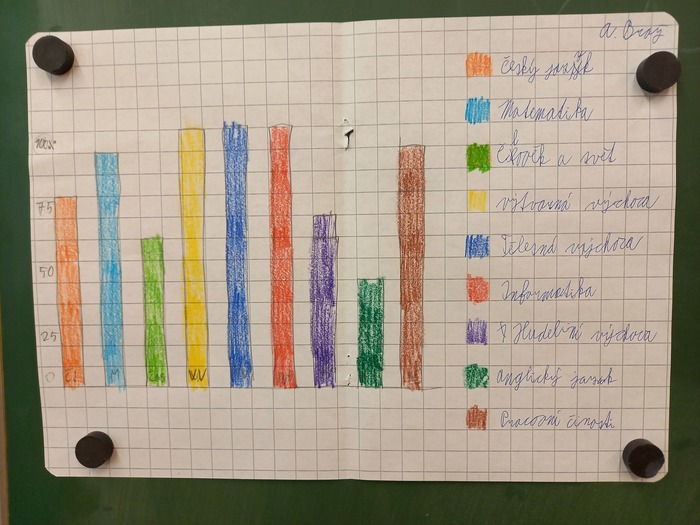 A. Brož
Český jazyk
Matematika
Člověk a svět
výtvarná výchova
Tělesná výchova
Informatika
Hudební výchova
Anglický jazyk
Pracovní činosti
100%
75
50
25
0
ČJ
M
ČaS
VV